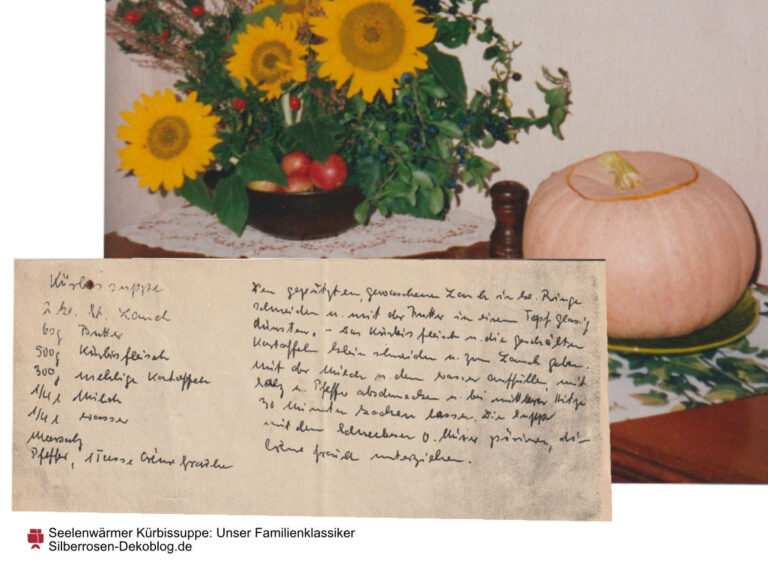 Kürbissuppe
2 kl. St. Lauch
60g Butter
500g Kürbisfleisch
300g mehlige Kartoffeln
1/4 l Milch
1/4 l Wasser
Meersalz
Pfeffer, 1 Tasse Crème fraîche
Den geputzten, gewaschenen Lauch in kl. Ringe
schneiden u. mit der Butter in einem Topf glasig
dünsten. – Das Kürbisfleisch u. die geschälten
Kartoffeln klein schneiden u. zum Lauch geben.
Mit der Milch u. dem Wasser auffüllen, mit
Salz u. Pfeffer abschmecken u. bei mittlerer Hitze
30 Minuten kochen lassen. Die Suppe
mit dem Schneebesen o. Mixer pürieren, die
Crème fraîche unterziehen.
Seelenwärmer Kürbissuppe: Unser Familienklassiker
Silberrosen-Dekoblog.de